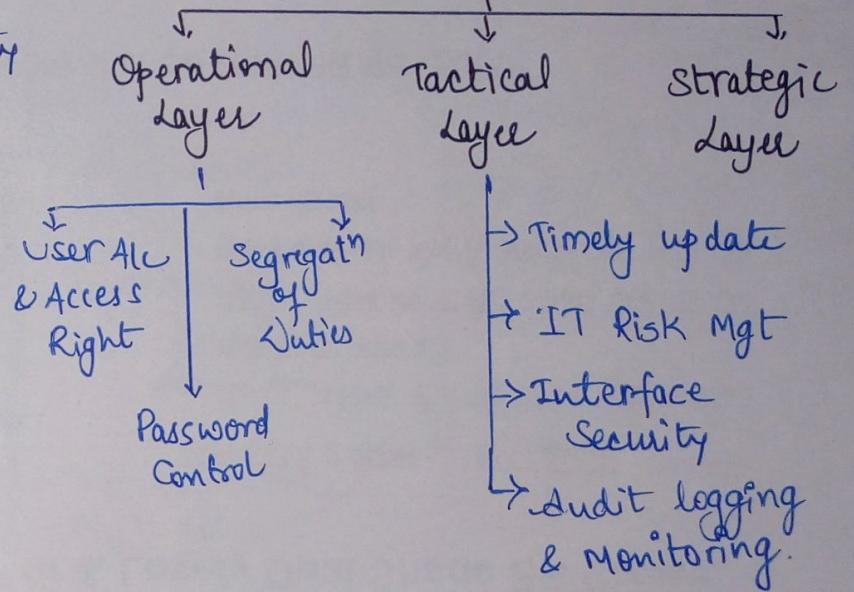 Operational
Layer
Tactical
Layer
Strategic
Layer
User A/c
& Access
Right
Segregatⁿ
of
Duties
Password
Control
Timely update
IT Risk Mgt
Interface
Security
Audit logging
& Monitoring.